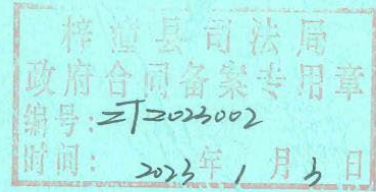 梓潼县司法局
政府合同备案专用章
编号: ZTZ023002
时间: 2023年1月3日